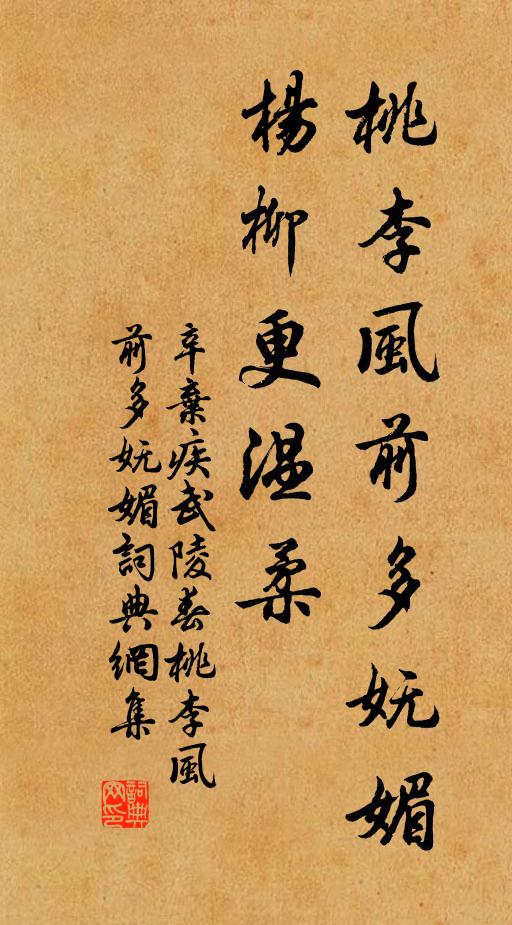 桃李風前多妩媚
楊柳更溫柔
辛棄疾武陵春桃李風
前多妩媚詞典網集
詞典
网印